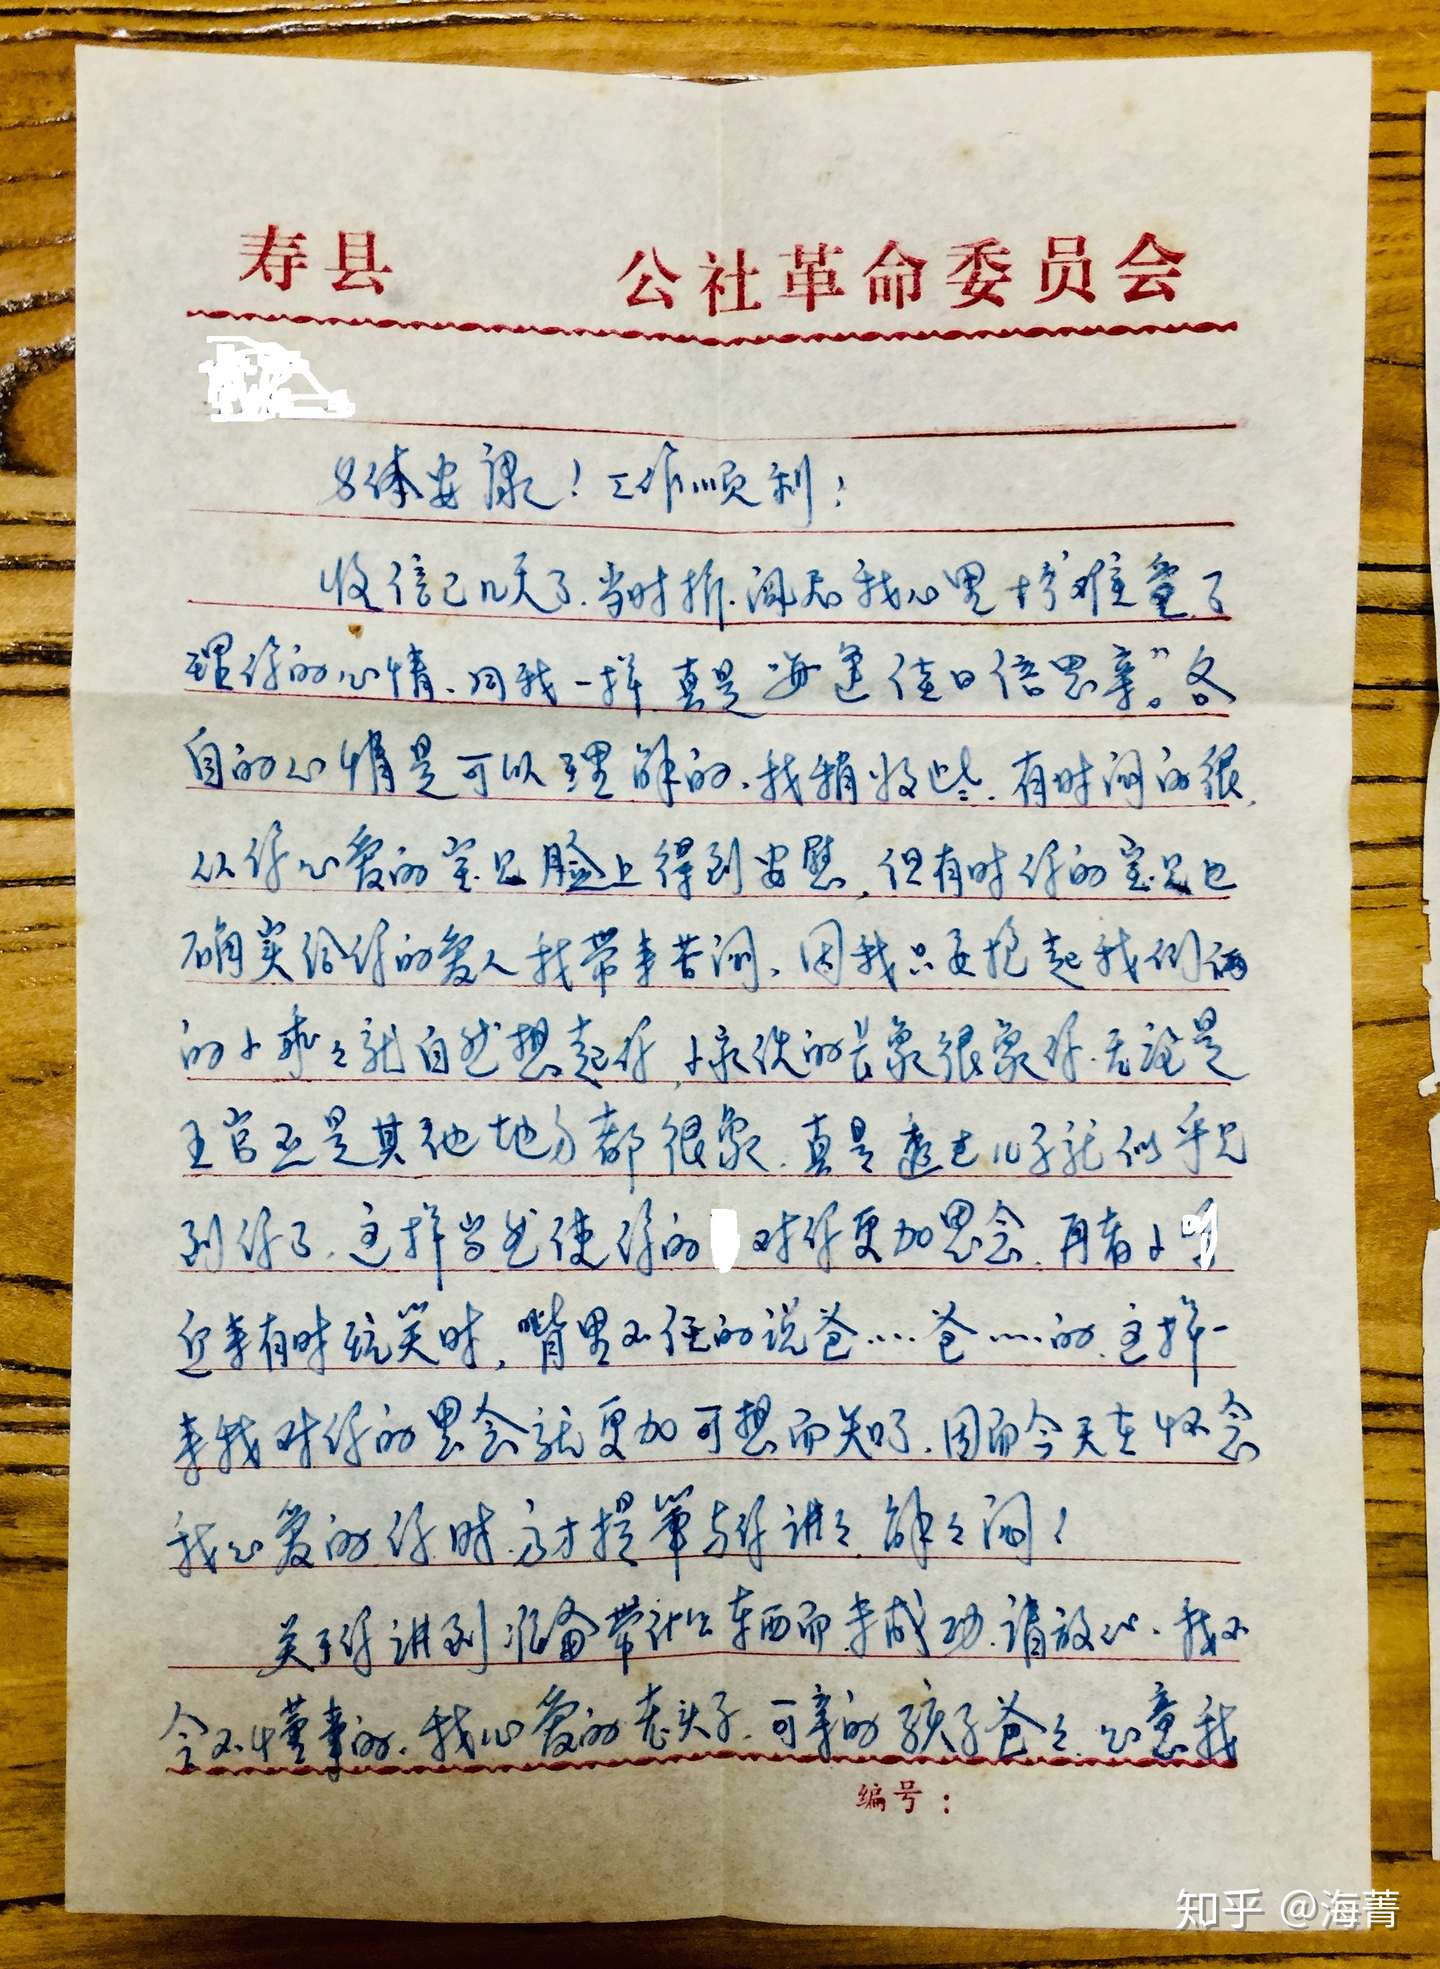 寿县 公社革命委员会
身体安康！工作顺利！
收信已几天了.当时拆.阅后我心里十分难受.了
理你的心情.同我一样.真是“每逢佳日倍思亲”。各
自的心情是可以理解的.我稍好些.有时闷的很,
从你心爱的宝贝脸上得到安慰,但有时你的宝贝也
确实给你的爱人我带来苦闷.因我只要抱起我们俩
的小乖乖就自然想起你,小家伙的长象很象你.无论是
五官还是其他地方都很象.真是看见儿子就似乎见
到你了.这样当然使你的 对你更加思念.再者小
近来有时玩笑时,嘴里不住的说爸……爸……的.这样一
来我对你的思念就更加可想而知了.因而今天在怀念
我心爱的你时.方才提笔与你讲讲.解解闷！
关于你讲到准备带什么东西而未成功.请放心.我不
会不懂事的.我心爱的老头子.可亲的孩子爸爸.心意我
编号：
知乎 @海菁